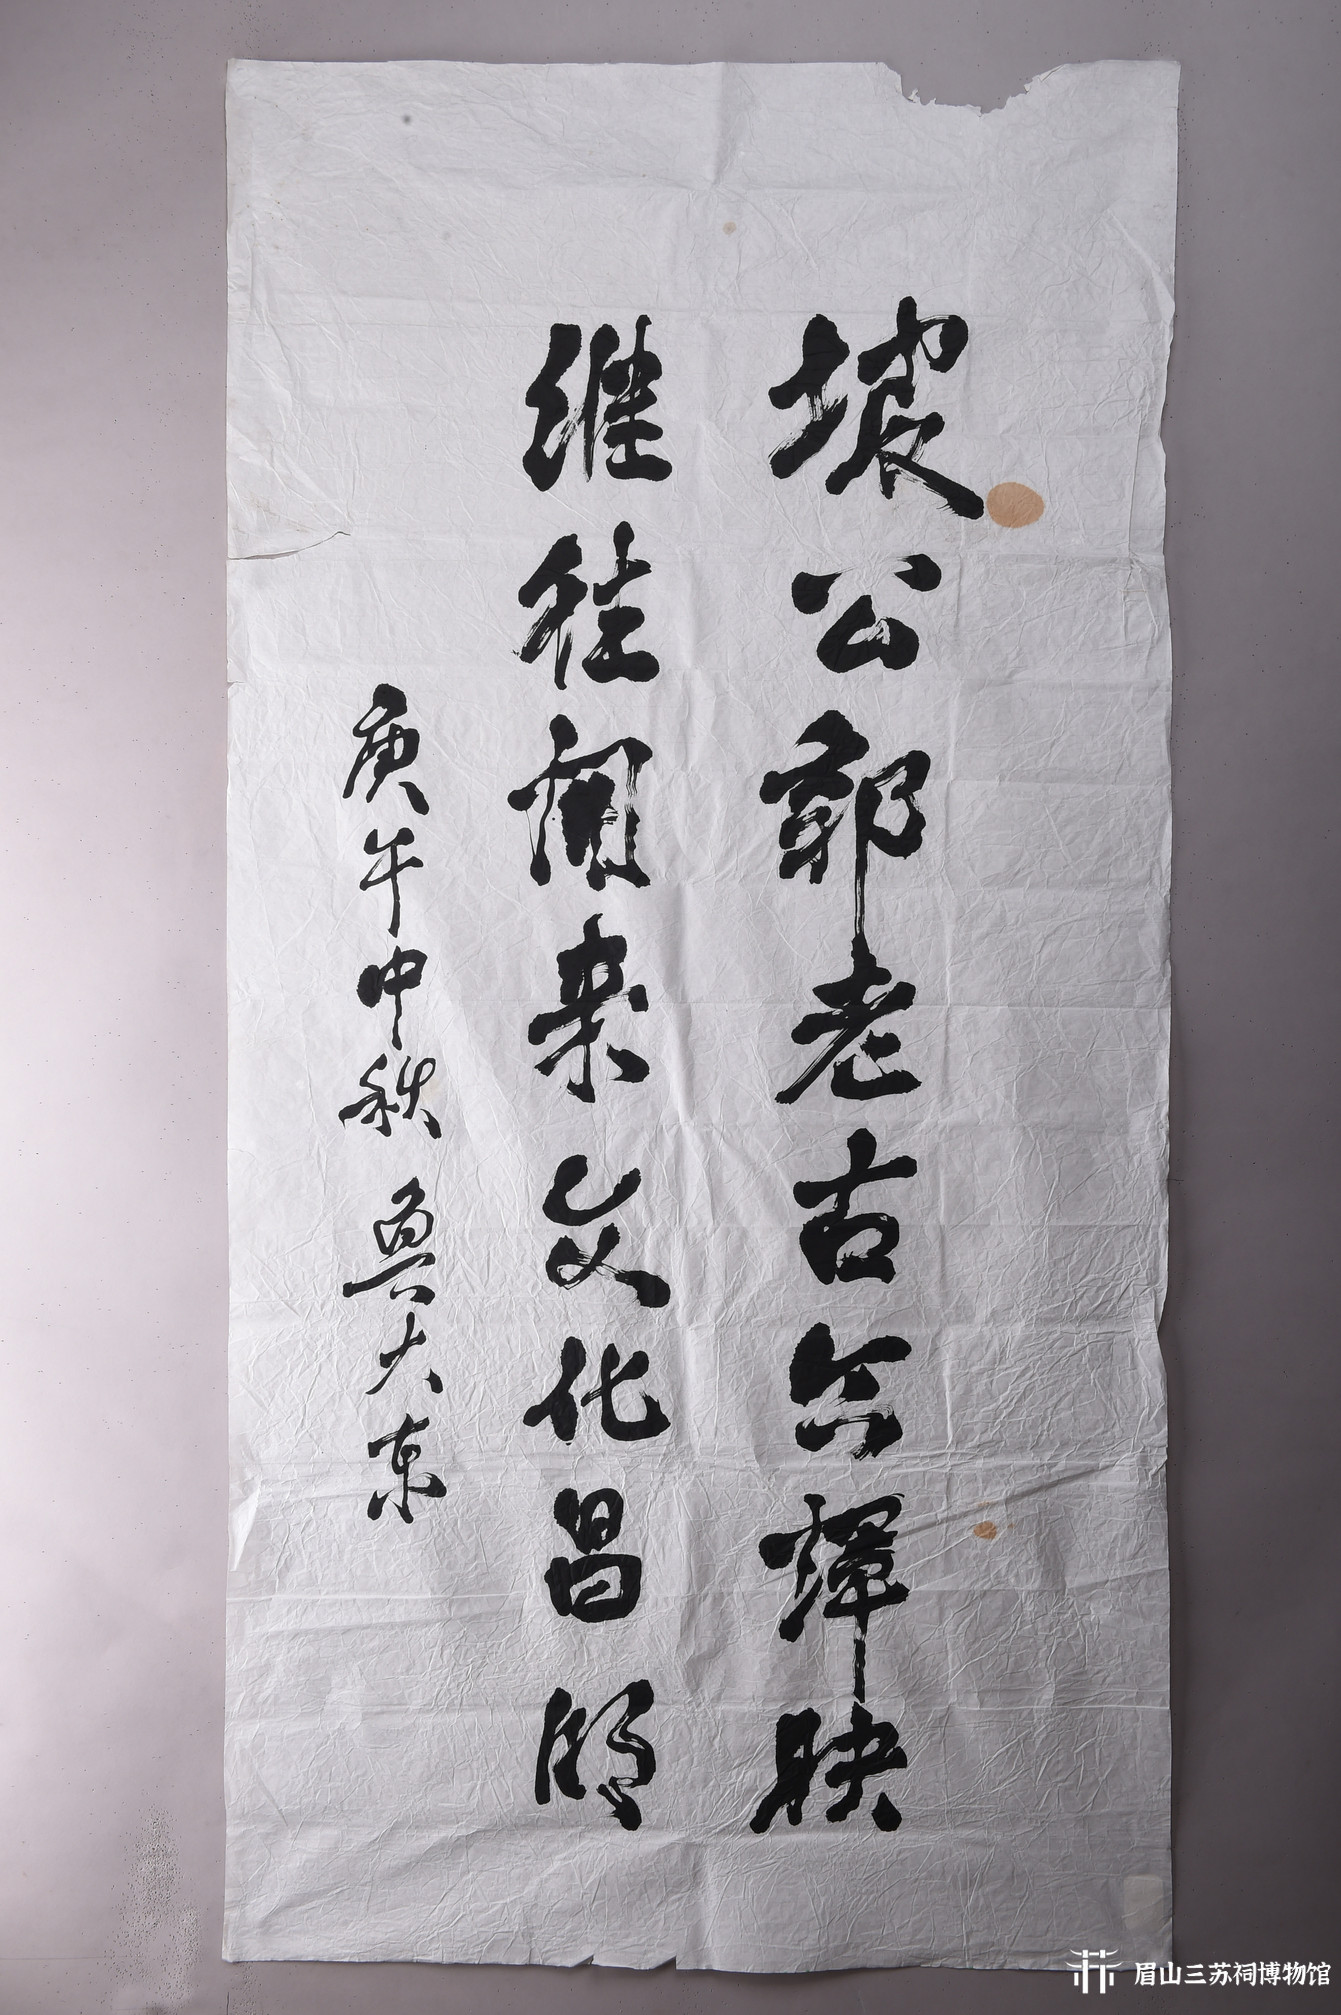 坡公郭老古今辉映
继往开来文化昌明
庚午中秋 鲁大东
眉山三苏祠博物馆